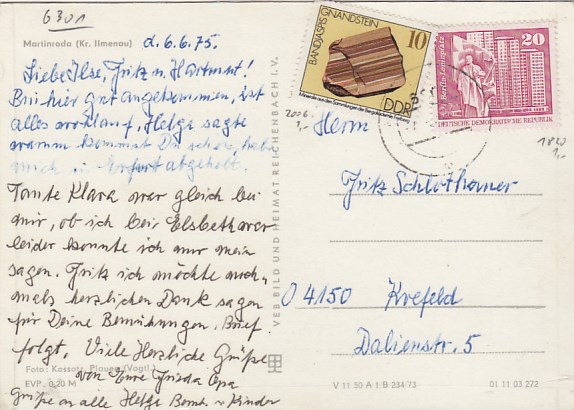 6301
Martinroda (Kr. Ilmenau) d. 6.6.75.
Liebe Ilse, Fritz u. Hartmut!
Bin hier gut angekommen, ist
alles wohlauf, Helga sagte
warum kommst Du schon, habe
mich in Erfurt abgeholt.
Tante Klara war gleich bei
mir, ob ich bei Elsbeth war
leider konnte ich nur nein
sagen. Fritz ich möchte noch
mals herzlichen Dank sagen
für Deine Bemühungen. Brief
folgt. Viele Herzliche Grüße
von Eure Frieda Opa
Grüße an alle Helga Bernh. u Kinder
Foto: Kossatz, Plauen (Vogtl.)
EVP. 0,20 M
VEB BILD UND HEIMAT REICHENBACH I. V.
BANDJASPIS GNANDSTEIN
10
DDR
20
Berlin, Leninplatz
DEUTSCHE DEMOKRATISCHE REPUBLIK
2006
1,-
1820
1,-
Herrn
Fritz Schlothauer
04150 Krefeld
Dalienstr. 5
V 11 50 A 1 B 234/73
01 11 03 272